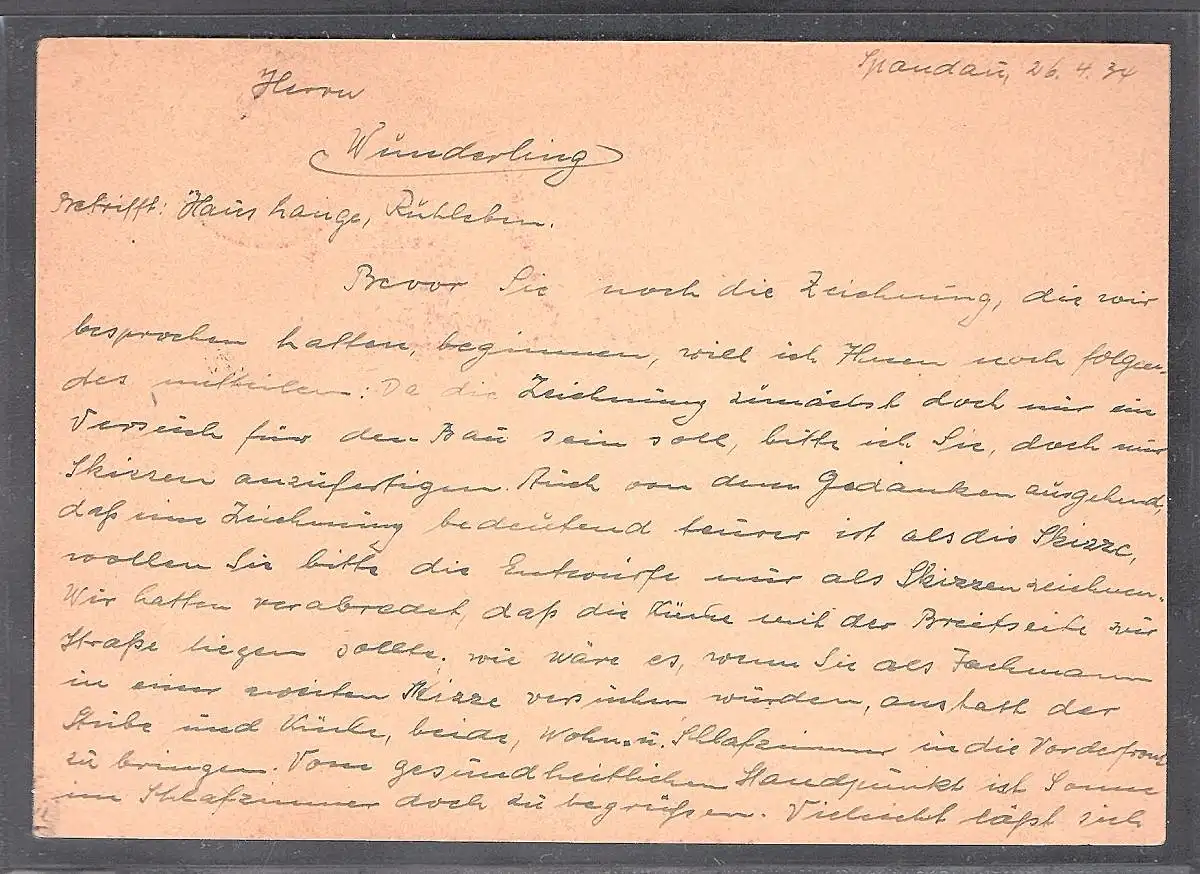 Spandau, 26. 4. 34
Herrn
Wunderling
Betrifft: Haus Lange, Ruhleben.
Bevor Sie noch die Zeichnung, die wir
besprochen hatten, beginnen, will ich Ihnen noch folgen-
des mitteilen: Da die Zeichnung zunächst doch nur ein
Versuch für den Bau sein soll, bitte ich Sie, doch nur
Skizzen anzufertigen. Auch von dem Gedanken ausgehend,
daß eine Zeichnung bedeutend teurer ist als die Skizze,
wollen Sie bitte die Entwürfe nur als Skizzen zeichnen.
Wir hatten verabredet, daß die Küche mit der Breitseite zur
Straße liegen sollte. wie wäre es, wenn Sie als Fachmann
in einer zweiten Skizze versuchen würden, anstatt der
Stube und Küche, beide, Wohn- u. Schlafzimmer in die Vorderfront
zu bringen. Vom gesundheitlichen Standpunkt ist Sonne
im Schlafzimmer doch zu begrüßen. Vielleicht läßt sich